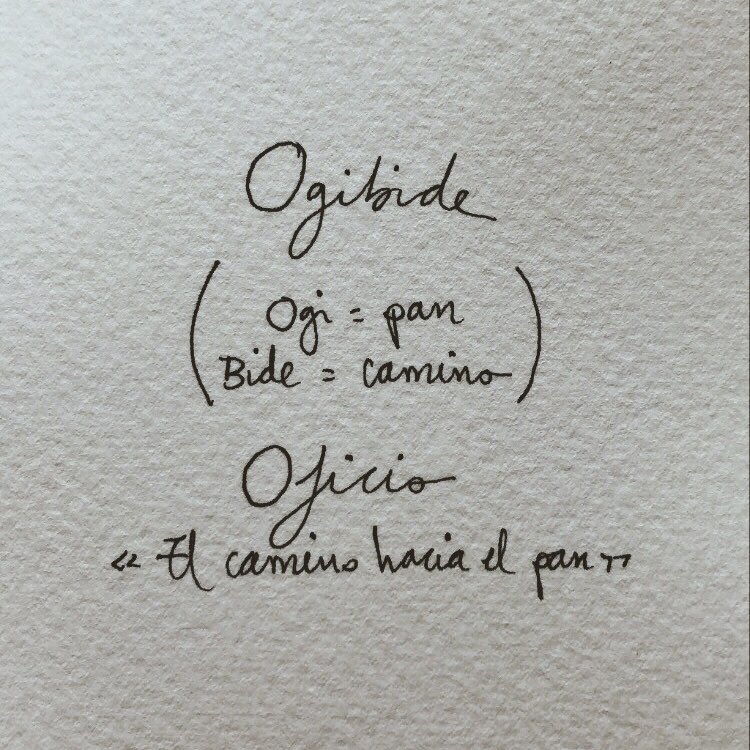 Ogibide
(Ogi = pan
Bide = camino)
Oficio
« El camino hacia el pan »